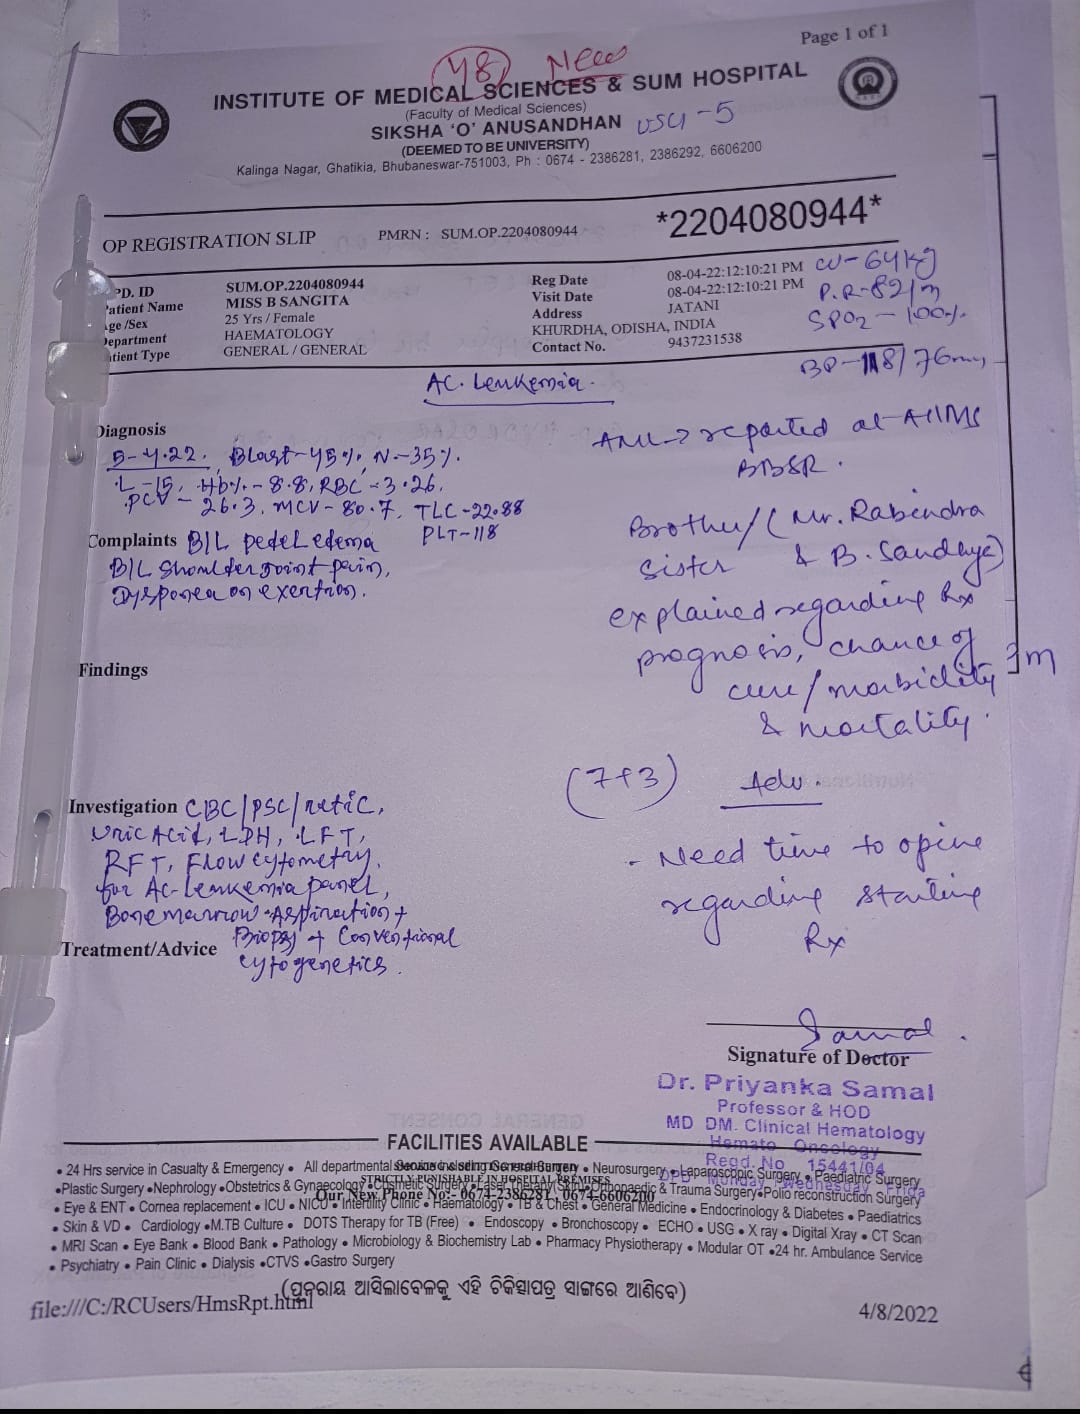 Page 1 of 1
48 New
INSTITUTE OF MEDICAL SCIENCES & SUM HOSPITAL
(Faculty of Medical Sciences)
SIKSHA 'O' ANUSANDHAN USG-5
(DEEMED TO BE UNIVERSITY)
Kalinga Nagar, Ghatikia, Bhubaneswar-751003, Ph : 0674 - 2386281, 2386292, 6606200
OP REGISTRATION SLIP PMRN : SUM.OP.2204080944 *2204080944*
PD. ID SUM.OP.2204080944 Reg Date 08-04-22:12:10:21 PM W-64Kg
atient Name MISS B SANGITA Visit Date 08-04-22:12:10:21 PM P.R-82/m
ge /Sex 25 Yrs / Female Address JATANI SPO2-100%
Department HAEMATOLOGY KHURDHA, ODISHA, INDIA
atient Type GENERAL / GENERAL Contact No. 9437231538
BP-118/76
AC. Leukemia.
Diagnosis
5-4.22, Blast-45%, N-35%.
L-15, Hb%-8.8, RBC-3.26,
PCV-26.3, MCV-80.7, TLC-22.88
PLT-118
Complaints B/L pedel edema
B/L Shoulder joint pain,
Dyspnea on exertion.
AML → reported at AIIMS
BBSR.
Brother/ (Mr. Rabendra
Sister & B. Sandhya)
explained regarding Rx
prognosis, chance of
cure/morbidity
& mortality.
Findings
(7+3) Adv.
- Need time to opine
regarding starting
Rx
Investigation CBC/PSC/retic,
Uric Acid, LDH, LFT,
RFT, Flow cytometry,
for Ac-Leukemia panel,
Bonemarrow Aspiration +
Biopsy + Conventional
cytogenetics.
Treatment/Advice
Samal
Signature of Doctor
Dr. Priyanka Samal
Professor & HOD
MD DM. Clinical Hematology
Hemato Oncology
Regd. No 15441/04
OPD Monday, Wednesday, Frida
FACILITIES AVAILABLE
• 24 Hrs service in Casualty & Emergency • All departmental • Neurosurgery • Laparoscopic Surgery • Paediatric Surgery
STRICTLY PUNISHABLE IN HOSPITAL PREMISES
•Plastic Surgery •Nephrology •Obstetrics & Gynaecology •Cosmetic Surgery •Laser Therapy(Skin) •Orthopaedic & Trauma Surgery •Polio reconstruction Surgery
Our New Phone No:- 0674-2386281, 0674-6606200
• Eye & ENT • Cornea replacement • ICU • NICU • Infertility Clinic • Haematology • TB & Chest • General Medicine • Endocrinology & Diabetes • Paediatrics
• Skin & VD • Cardiology •M.TB Culture • DOTS Therapy for TB (Free) • Endoscopy • Bronchoscopy • ECHO • USG • X ray • Digital Xray • CT Scan
• MRI Scan • Eye Bank • Blood Bank • Pathology • Microbiology & Biochemistry Lab • Pharmacy Physiotherapy • Modular OT •24 hr. Ambulance Service
• Psychiatry • Pain Clinic • Dialysis •CTVS •Gastro Surgery
(ପୁନରାୟ ଆସିଲାବେଳକୁ ଏହି ଚିକିତ୍ସାପତ୍ର ସାଙ୍ଗରେ ଆଣିବେ)
file:///C:/RCUsers/HmsRpt.html 4/8/2022